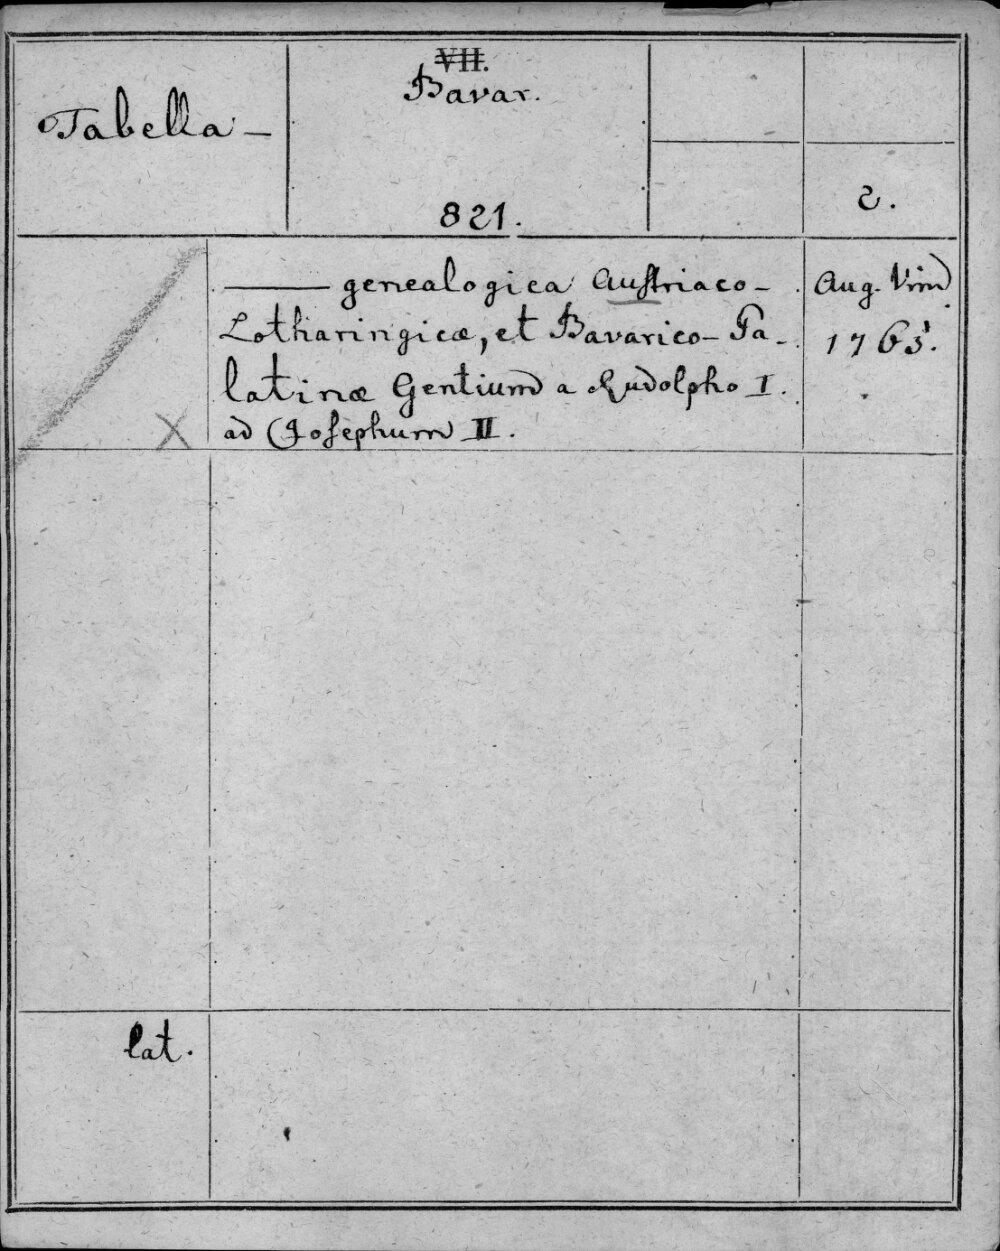 VII.
Bavar.
Tabella —
821.
2.
——— genealogica Austriaco-
Lotharingicæ, et Bavarico-Pa-
latinæ Gentium a Rudolpho I.
ad Josephum II.
Aug. Vind
1765.
X
lat.